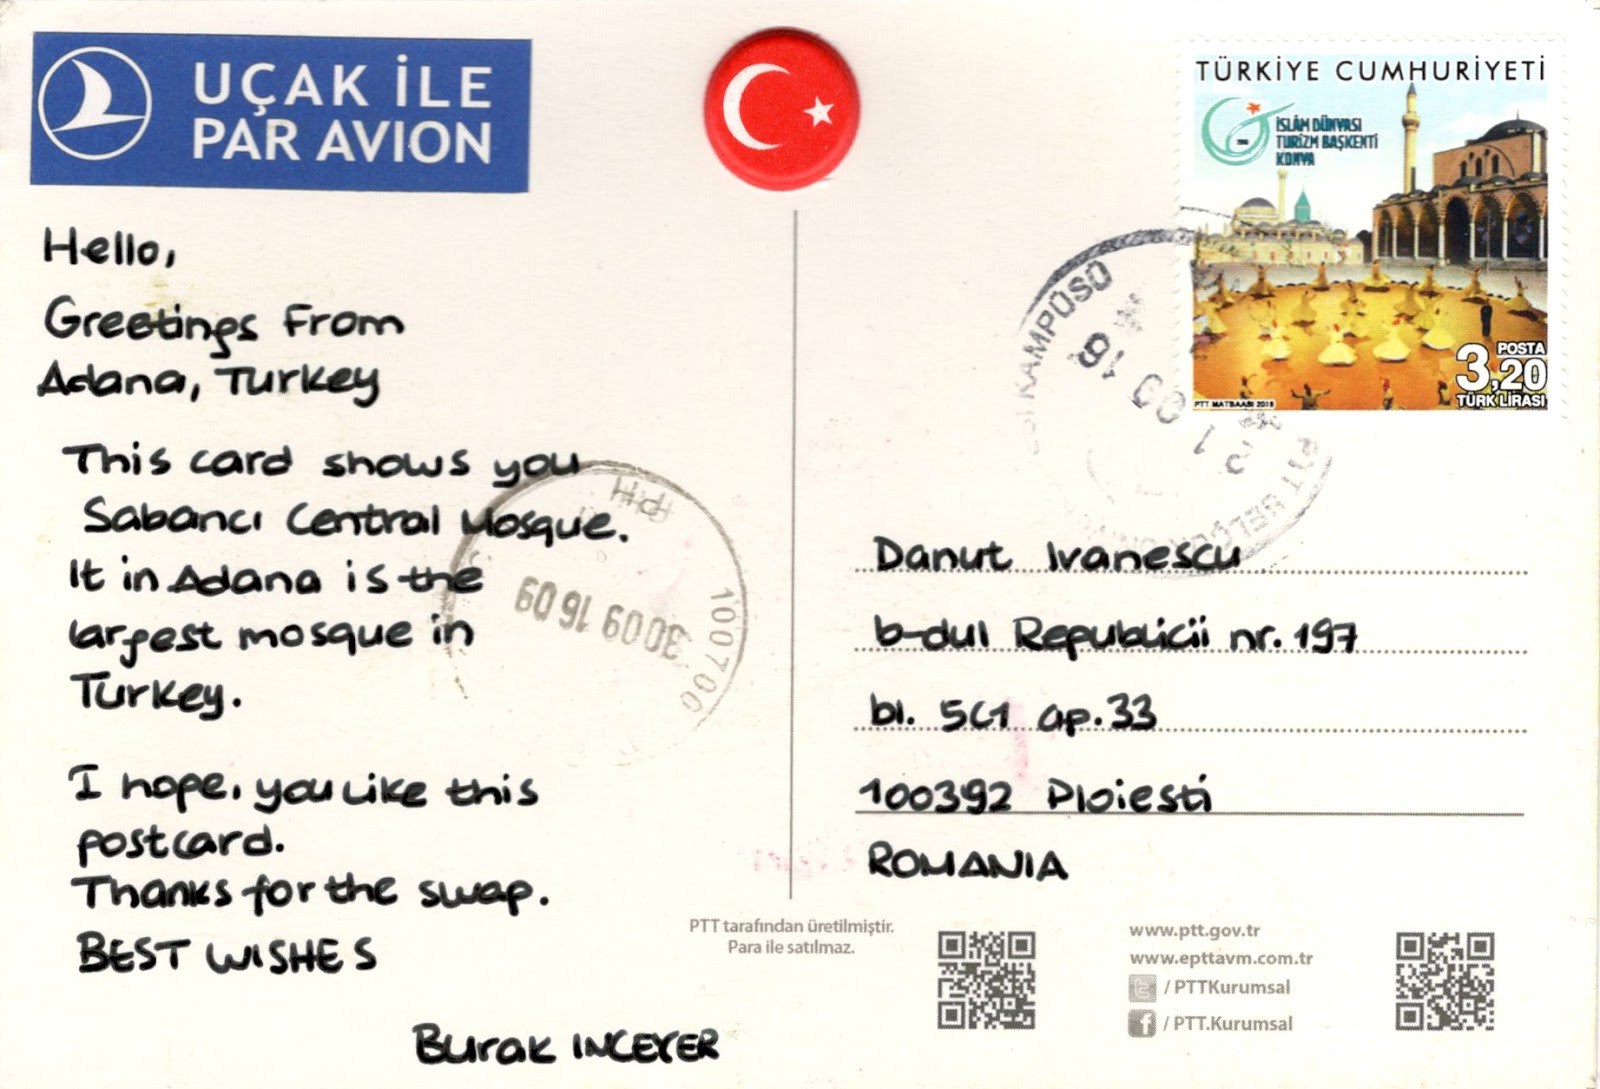 UÇAK İLE
PAR AVION
TÜRKİYE CUMHURİYETİ
İSLÂM DÜNYASI
TURİZM BAŞKENTİ
KONYA
POSTA
3,20
TÜRK LİRASI
PTT MATBAASI
KAMPÜSÜ
PTT
100700
30 09 16 09
Hello,
Greetings From
Adana, Turkey
This card shows you
Sabancı Central Mosque.
It in Adana is the
largest mosque in
Turkey.
I hope, you like this
postcard.
Thanks for the swap.
BEST WISHES
Burak INCEYER
Danut Ivanescu
b-dul Republicii nr. 197
bl. 5C1 ap. 33
100392 Ploiesti
ROMANIA
PTT tarafından üretilmiştir.
Para ile satılmaz.
www.ptt.gov.tr
www.epttavm.com.tr
/ PTTKurumsal
/ PTT.Kurumsal